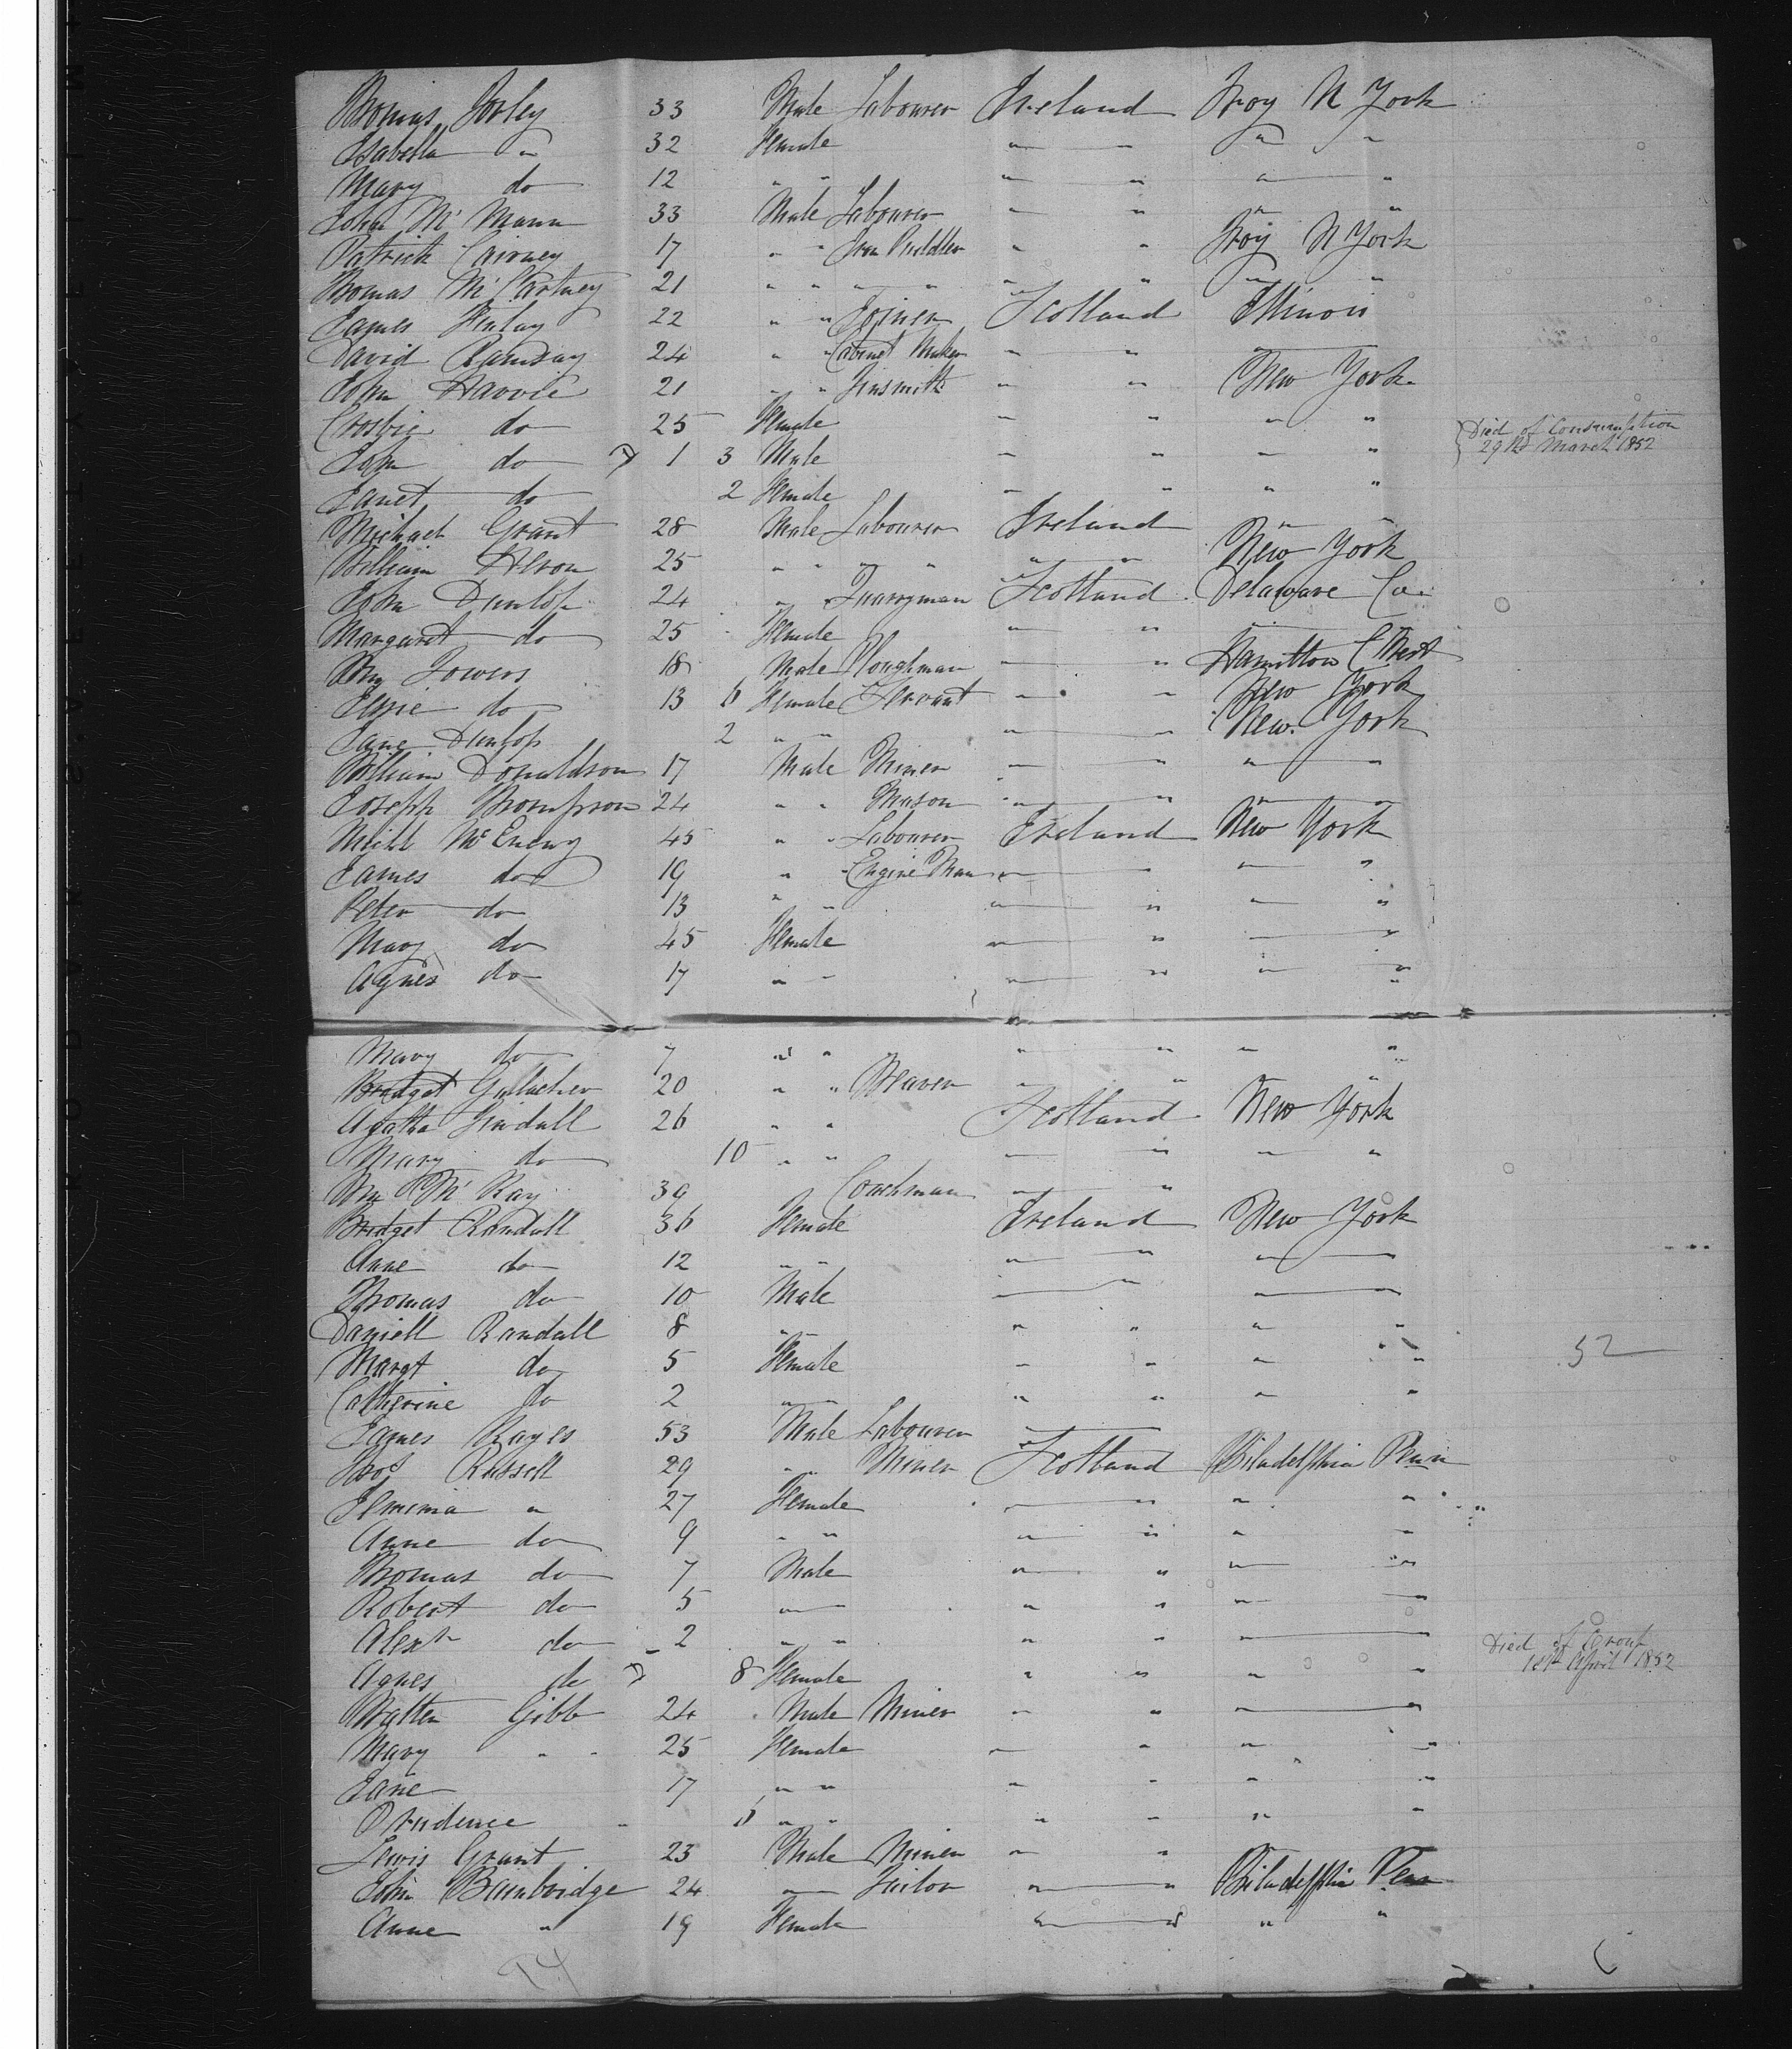 Thomas Sorley 33 Male Labourer Ireland Troy N York
Isabella " 32 Female " " " "
Mary do 12 " " " " " "
John McMann 33 Male Labourer " " " "
Patrick Cairney 17 " " Iron Puddler " " Troy N York
Thomas McCartney 21 " " " " " " " "
James Finlay 22 " " Joiner Scotland Illinois
David Ramsay 24 " " Cabinet Maker " " "
John Harvie 21 " " Tinsmith " " New York
Crosbie do 25 Female " " " "
John do D 1 3 Male " " " " Died of Consumption 29th March 1852
Janet do 2 Female " " " "
Michael Grant 28 Male Labourer Ireland " "
William Heron 25 " " " " " " New York
John Dunlop 24 " Quarryman Scotland Delaware Co.
Margaret do 25 Female " " "
Wm Towers 18 Male Ploughman " " Hamilton C West
Elsie do 13 6 Female Servant " " New York
Jane Dunlop 2 " " " " New York
William Donaldson 17 Male Miner " " " "
Joseph Thompson 24 " " Mason " " " "
Michl McEneny 45 " " Labourer Ireland New York
James do 19 " Engine Man " " " "
Peter do 13 " " " " " "
Mary do 45 Female " " " "
Agnes do 17 " " " " " "
Mary do 7 " " " " " "
Bridget Galacher 20 " " Weaver " " "
Agatha Tindall 26 " " Scotland New York
Mary do 10 " " " " " "
Wm McKay 39 Coachman " "
Bridget Randall 36 Female Ireland New York
Anne do 12 " " " " " "
Thomas do 10 Male " " " "
Daniell Randall 8 " " " " "
Margt do 5 Female " " " "
Catherine do 2 " " " " " "
James Kayes 53 Male Labourer "
Jas Russell 29 " " Miner Scotland Philadelphia Penn
Jemima " 27 Female " " " "
Anne do 9 " " " " " "
Thomas do 7 Male " " " "
Robert do 5 " " " " "
Alexr do 2 " " " " " "
Agnes do D 8 Female " " " " Died of Croup April 1852
Walter Gibb 24 Male Miner " " " "
Mary " " 25 Female " " " "
Jane 17 " " " " " "
Prudence " 6 " " " " " "
Lewis Grant 23 Male Miner " "
John Bambridge 24 " Tailor " " Philadelphia Penn
Anne " 19 Female " " " "
52